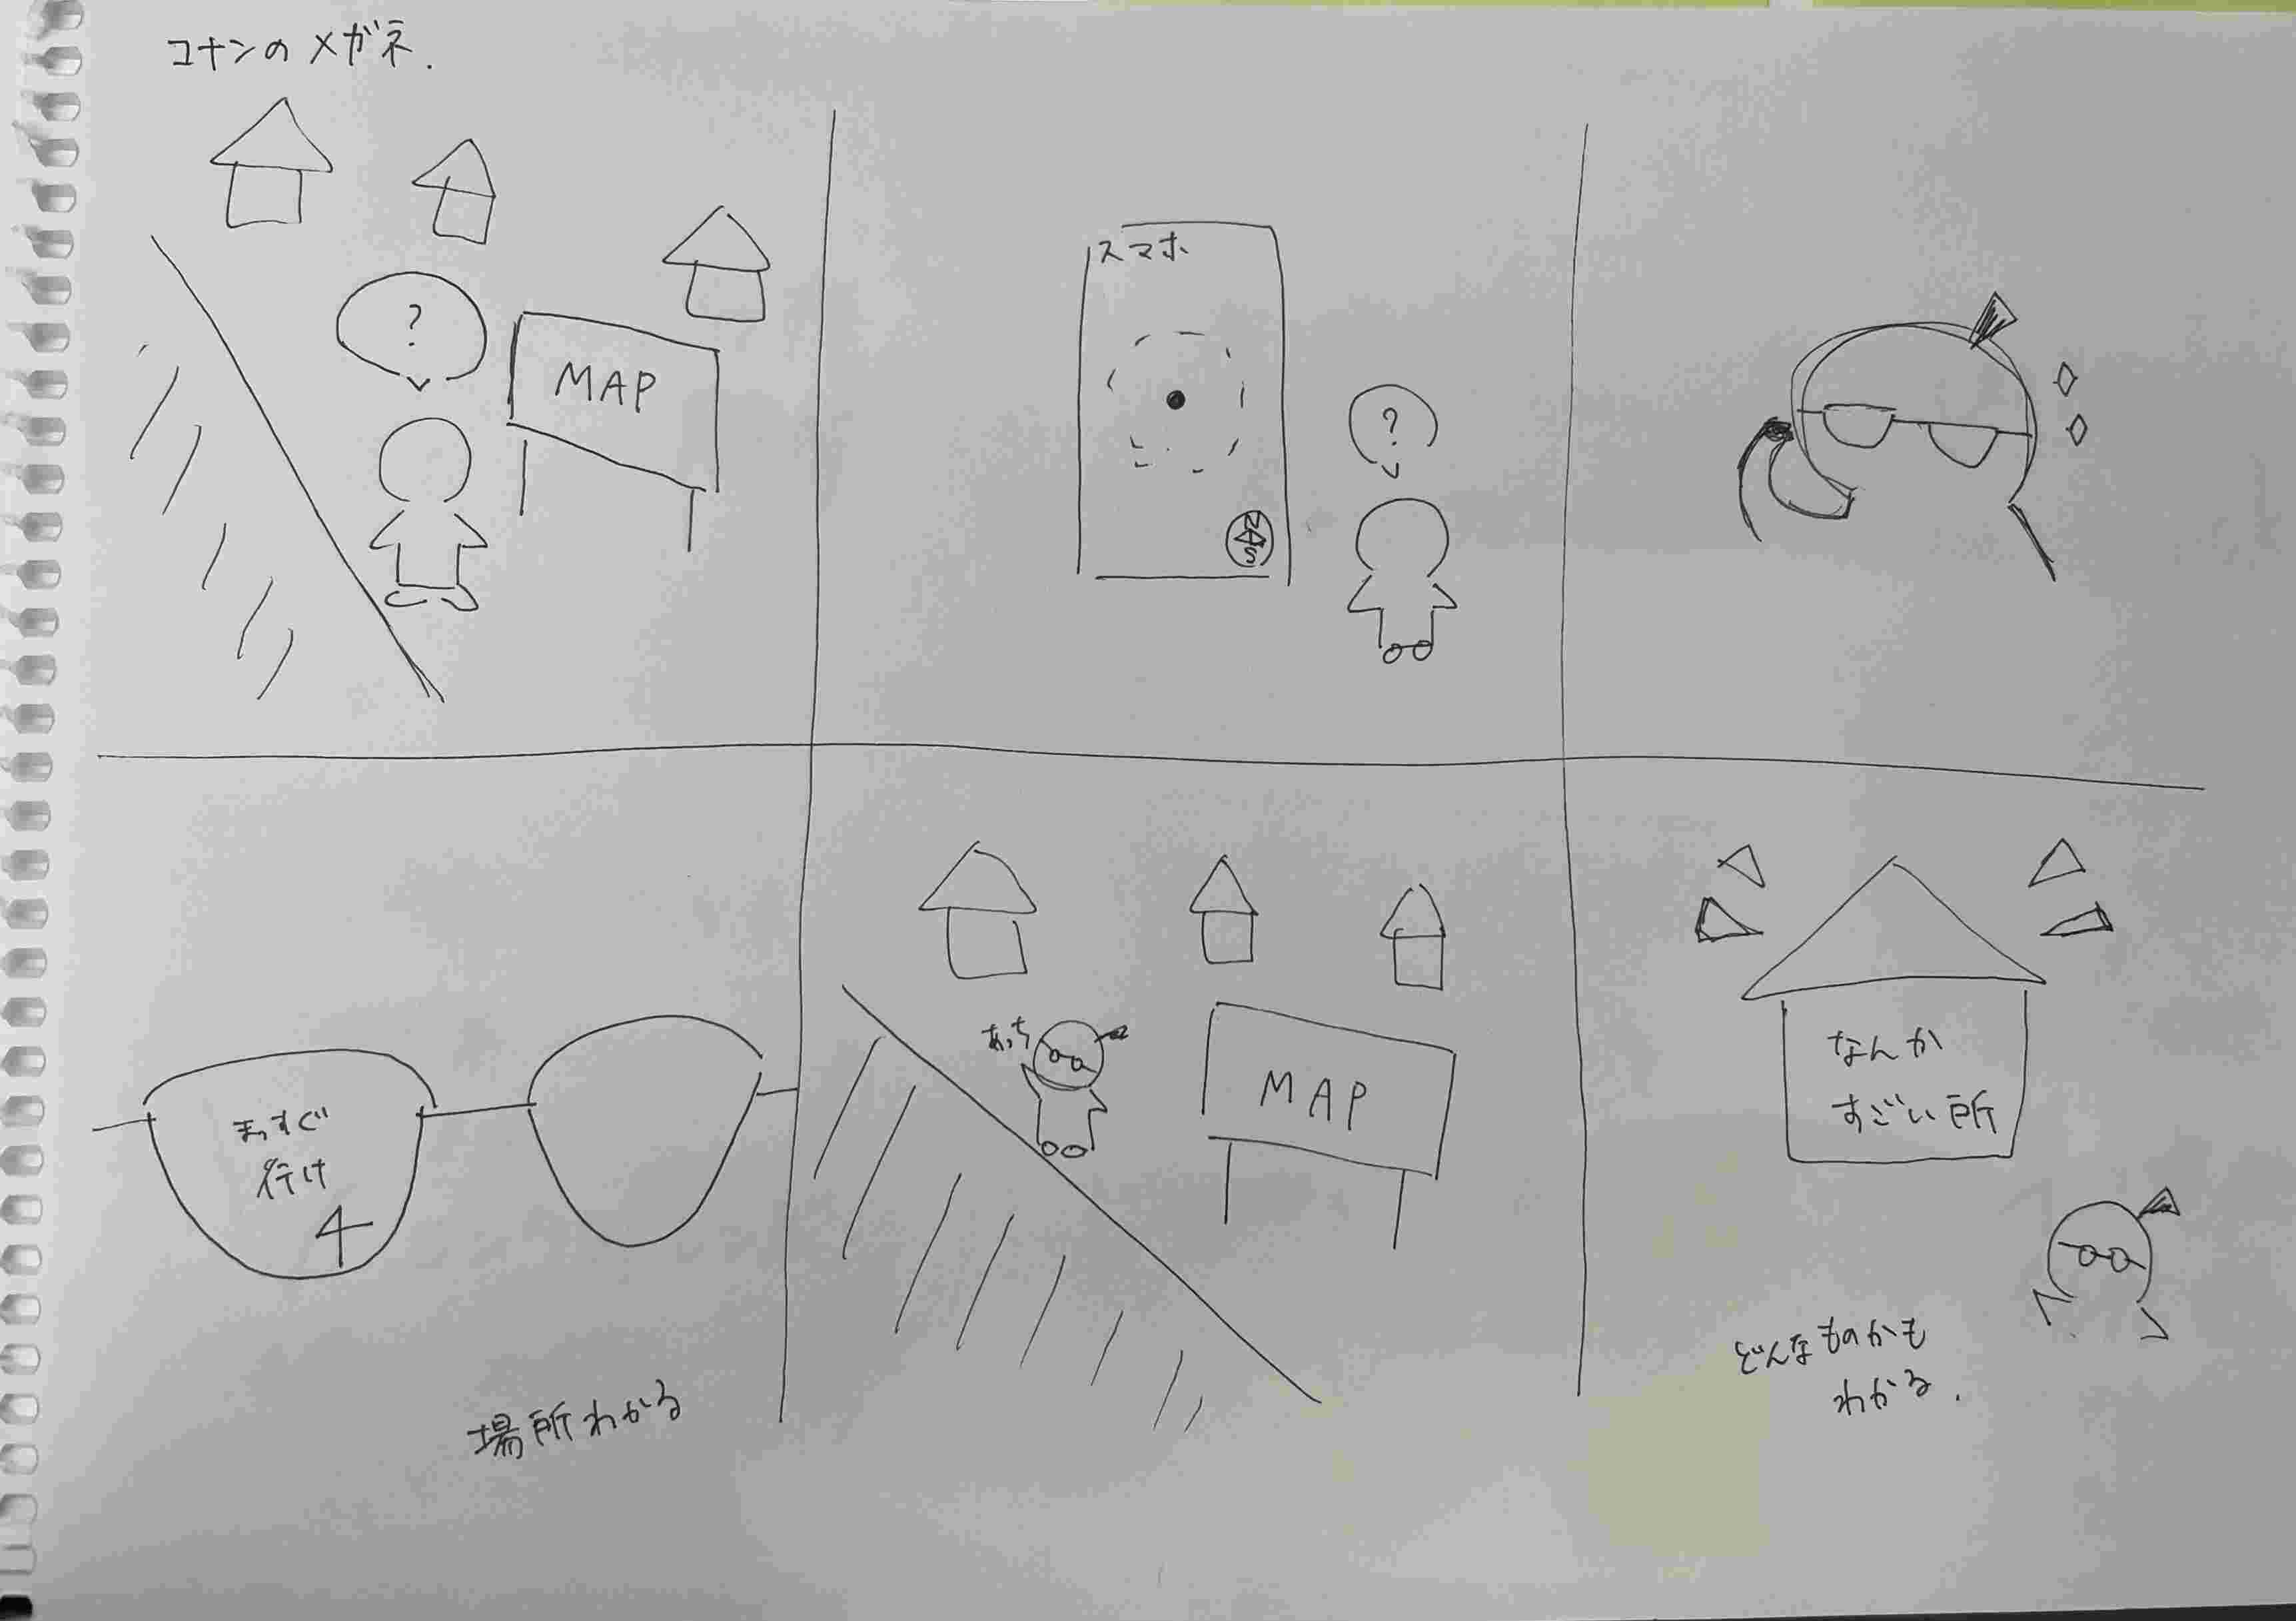 コナンのメガネ.
?
MAP
スマホ
?
N
S
まっすぐ
行け
場所わかる
あっち
MAP
なんか
すごい所
どんなものかも
わかる.